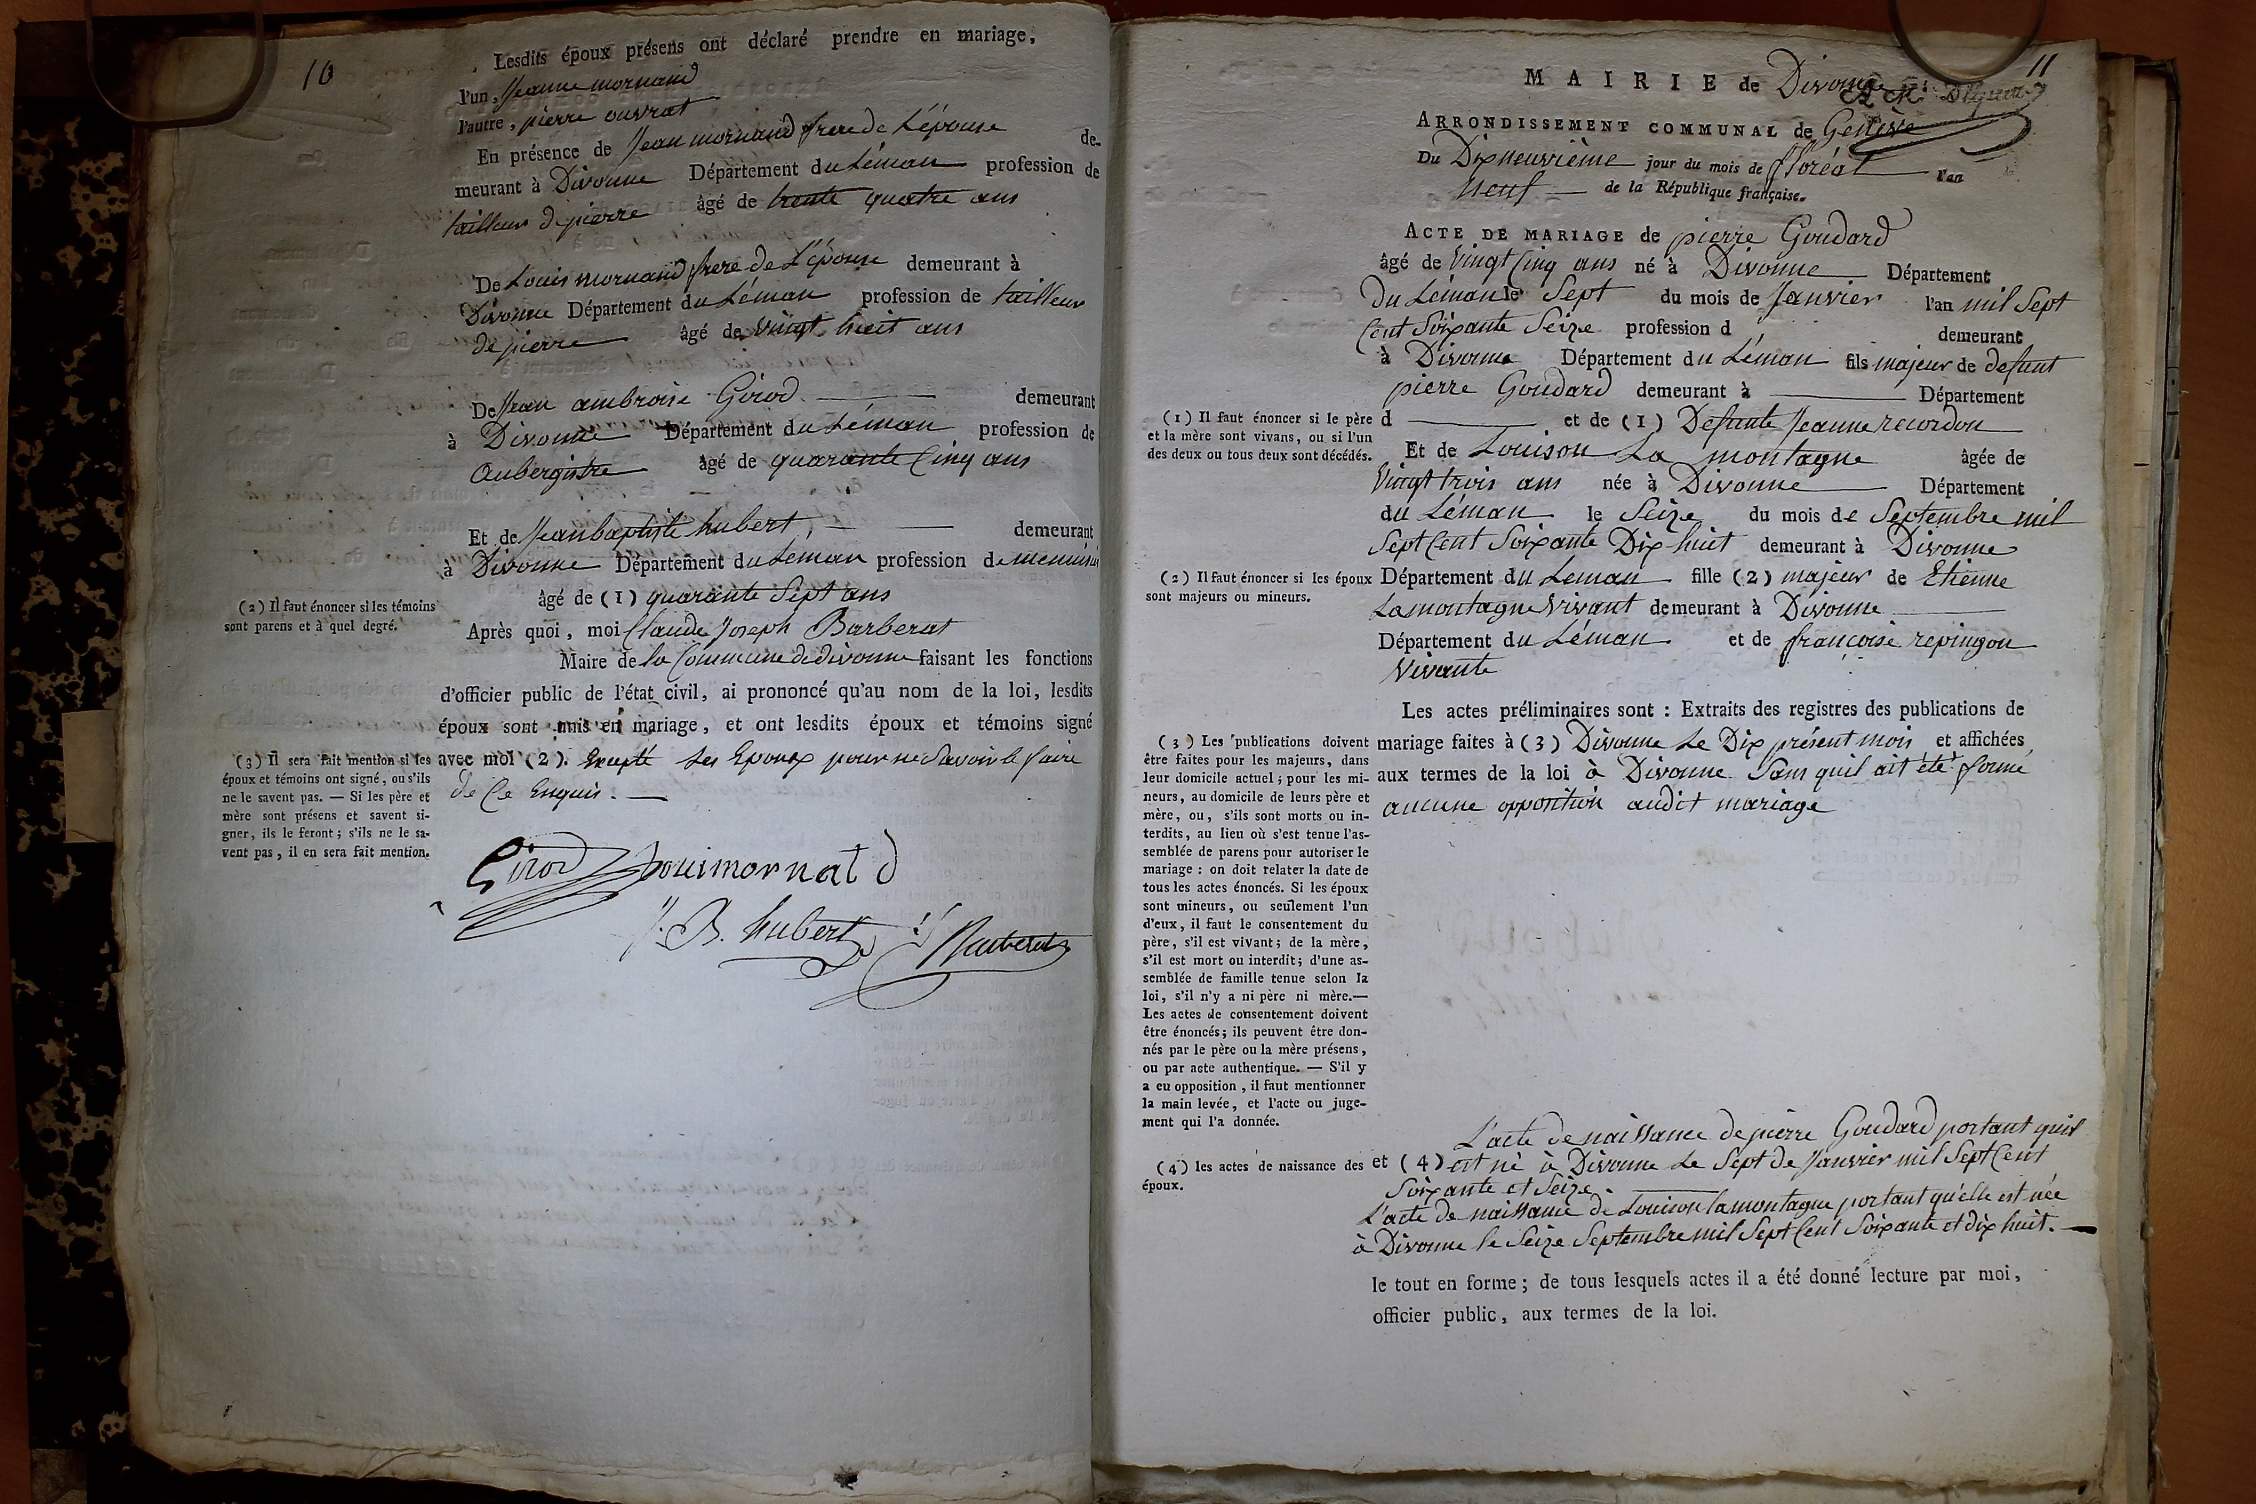 10
Lesdits époux présens ont déclaré prendre en mariage,
l'un, Jeanne mornand
l'autre, pierre ouvrat
En présence de Jean mornand frere de L'épouse de-
meurant à Divonne Département du Léman profession de
tailleur de pierre âgé de trente quatre ans
De Louis mornand frere de L'épouse demeurant à
Divonne Département du Léman profession de tailleur
de pierre âgé de vingt huit ans
De Jean ambroise Girod demeurant
à Divonne Département du Léman profession de
Aubergiste âgé de quarante Cinq ans
Et de Jean baptiste hubert demeurant
à Divonne Département du Léman profession de menuisier
âgé de (1) quarante Sept ans
(2) Il faut énoncer si les témoins
sont parens et à quel degré.
Après quoi, moi Claude Joseph Barberat
Maire de la Commune de divonne faisant les fonctions
d'officier public de l'état civil, ai prononcé qu'au nom de la loi, lesdits
époux sont unis en mariage, et ont lesdits époux et témoins signé
avec moi (2). Excepté Les Epoux pour ne Savoir le faire
de Ce Enquis.
(3) Il sera fait mention si les
époux et témoins ont signé, ou s'ils
ne le savent pas. — Si les père et
mère sont présens et savent si-
gner, ils le feront; s'ils ne le sa-
vent pas, il en sera fait mention.
Girod Louimornald
J. B. hubert Barberat
11
MAIRIE de Divonne
ARRONDISSEMENT COMMUNAL de Genève
Du Dix neuvième jour du mois de floréal l'an
neuf de la République française.
ACTE DE MARIAGE de pierre Goudard
âgé de Vingt Cinq ans né à Divonne Département
du Léman le Sept du mois de Janvier l'an mil Sept
Cent Soixante Seize profession d demeurant
à Divonne Département du Léman fils majeur de defunt
pierre Goudard demeurant à Département
d et de (1) Defunte Jeanne recordon
(1) Il faut énoncer si le père
et la mère sont vivans, ou si l'un
des deux ou tous deux sont décédés.
Et de Louison La montagne âgée de
Vingt trois ans née à Divonne Département
du Léman le Seize du mois de Septembre mil
Sept Cent Soixante Dix huit demeurant à Divonne
Département du Leman fille (2) majeur de Etienne
Lamontagne Vivant demeurant à Divonne
Département du Léman et de françoise repingon
Vivante
(2) Il faut énoncer si les époux
sont majeurs ou mineurs.
Les actes préliminaires sont : Extraits des registres des publications de
mariage faites à (3) Divonne Le Dix présent mois et affichées
aux termes de la loi à Divonne Sans quil ait été formé
aucune opposition audit mariage
(3) Les publications doivent
être faites pour les majeurs, dans
leur domicile actuel; pour les mi-
neurs, au domicile de leurs père et
mère, ou, s'ils sont morts ou in-
terdits, au lieu où s'est tenue l'as-
semblée de parens pour autoriser le
mariage : on doit relater la date de
tous les actes énoncés. Si les époux
sont mineurs, ou seulement l'un
d'eux, il faut le consentement du
père, s'il est vivant; de la mère,
s'il est mort ou interdit; d'une as-
semblée de famille tenue selon la
loi, s'il n'y a ni père ni mère.—
Les actes de consentement doivent
être énoncés; ils peuvent être don-
nés par le père ou la mère présens,
ou par acte authentique. — S'il y
a eu opposition, il faut mentionner
la main levée, et l'acte ou juge-
ment qui l'a donnée.
(4) les actes de naissance des
époux.
L'acte de naissance de pierre Goudard portant quil
et (4) est né à Divonne Le Sept de Janvier mil Sept Cent
Soixante et Seize
L'acte de naissance de Louison lamontagne portant qu'elle est née
à Divonne le Seize Septembre mil Sept Cent Soixante et dix huit.
le tout en forme; de tous lesquels actes il a été donné lecture par moi,
officier public, aux termes de la loi.